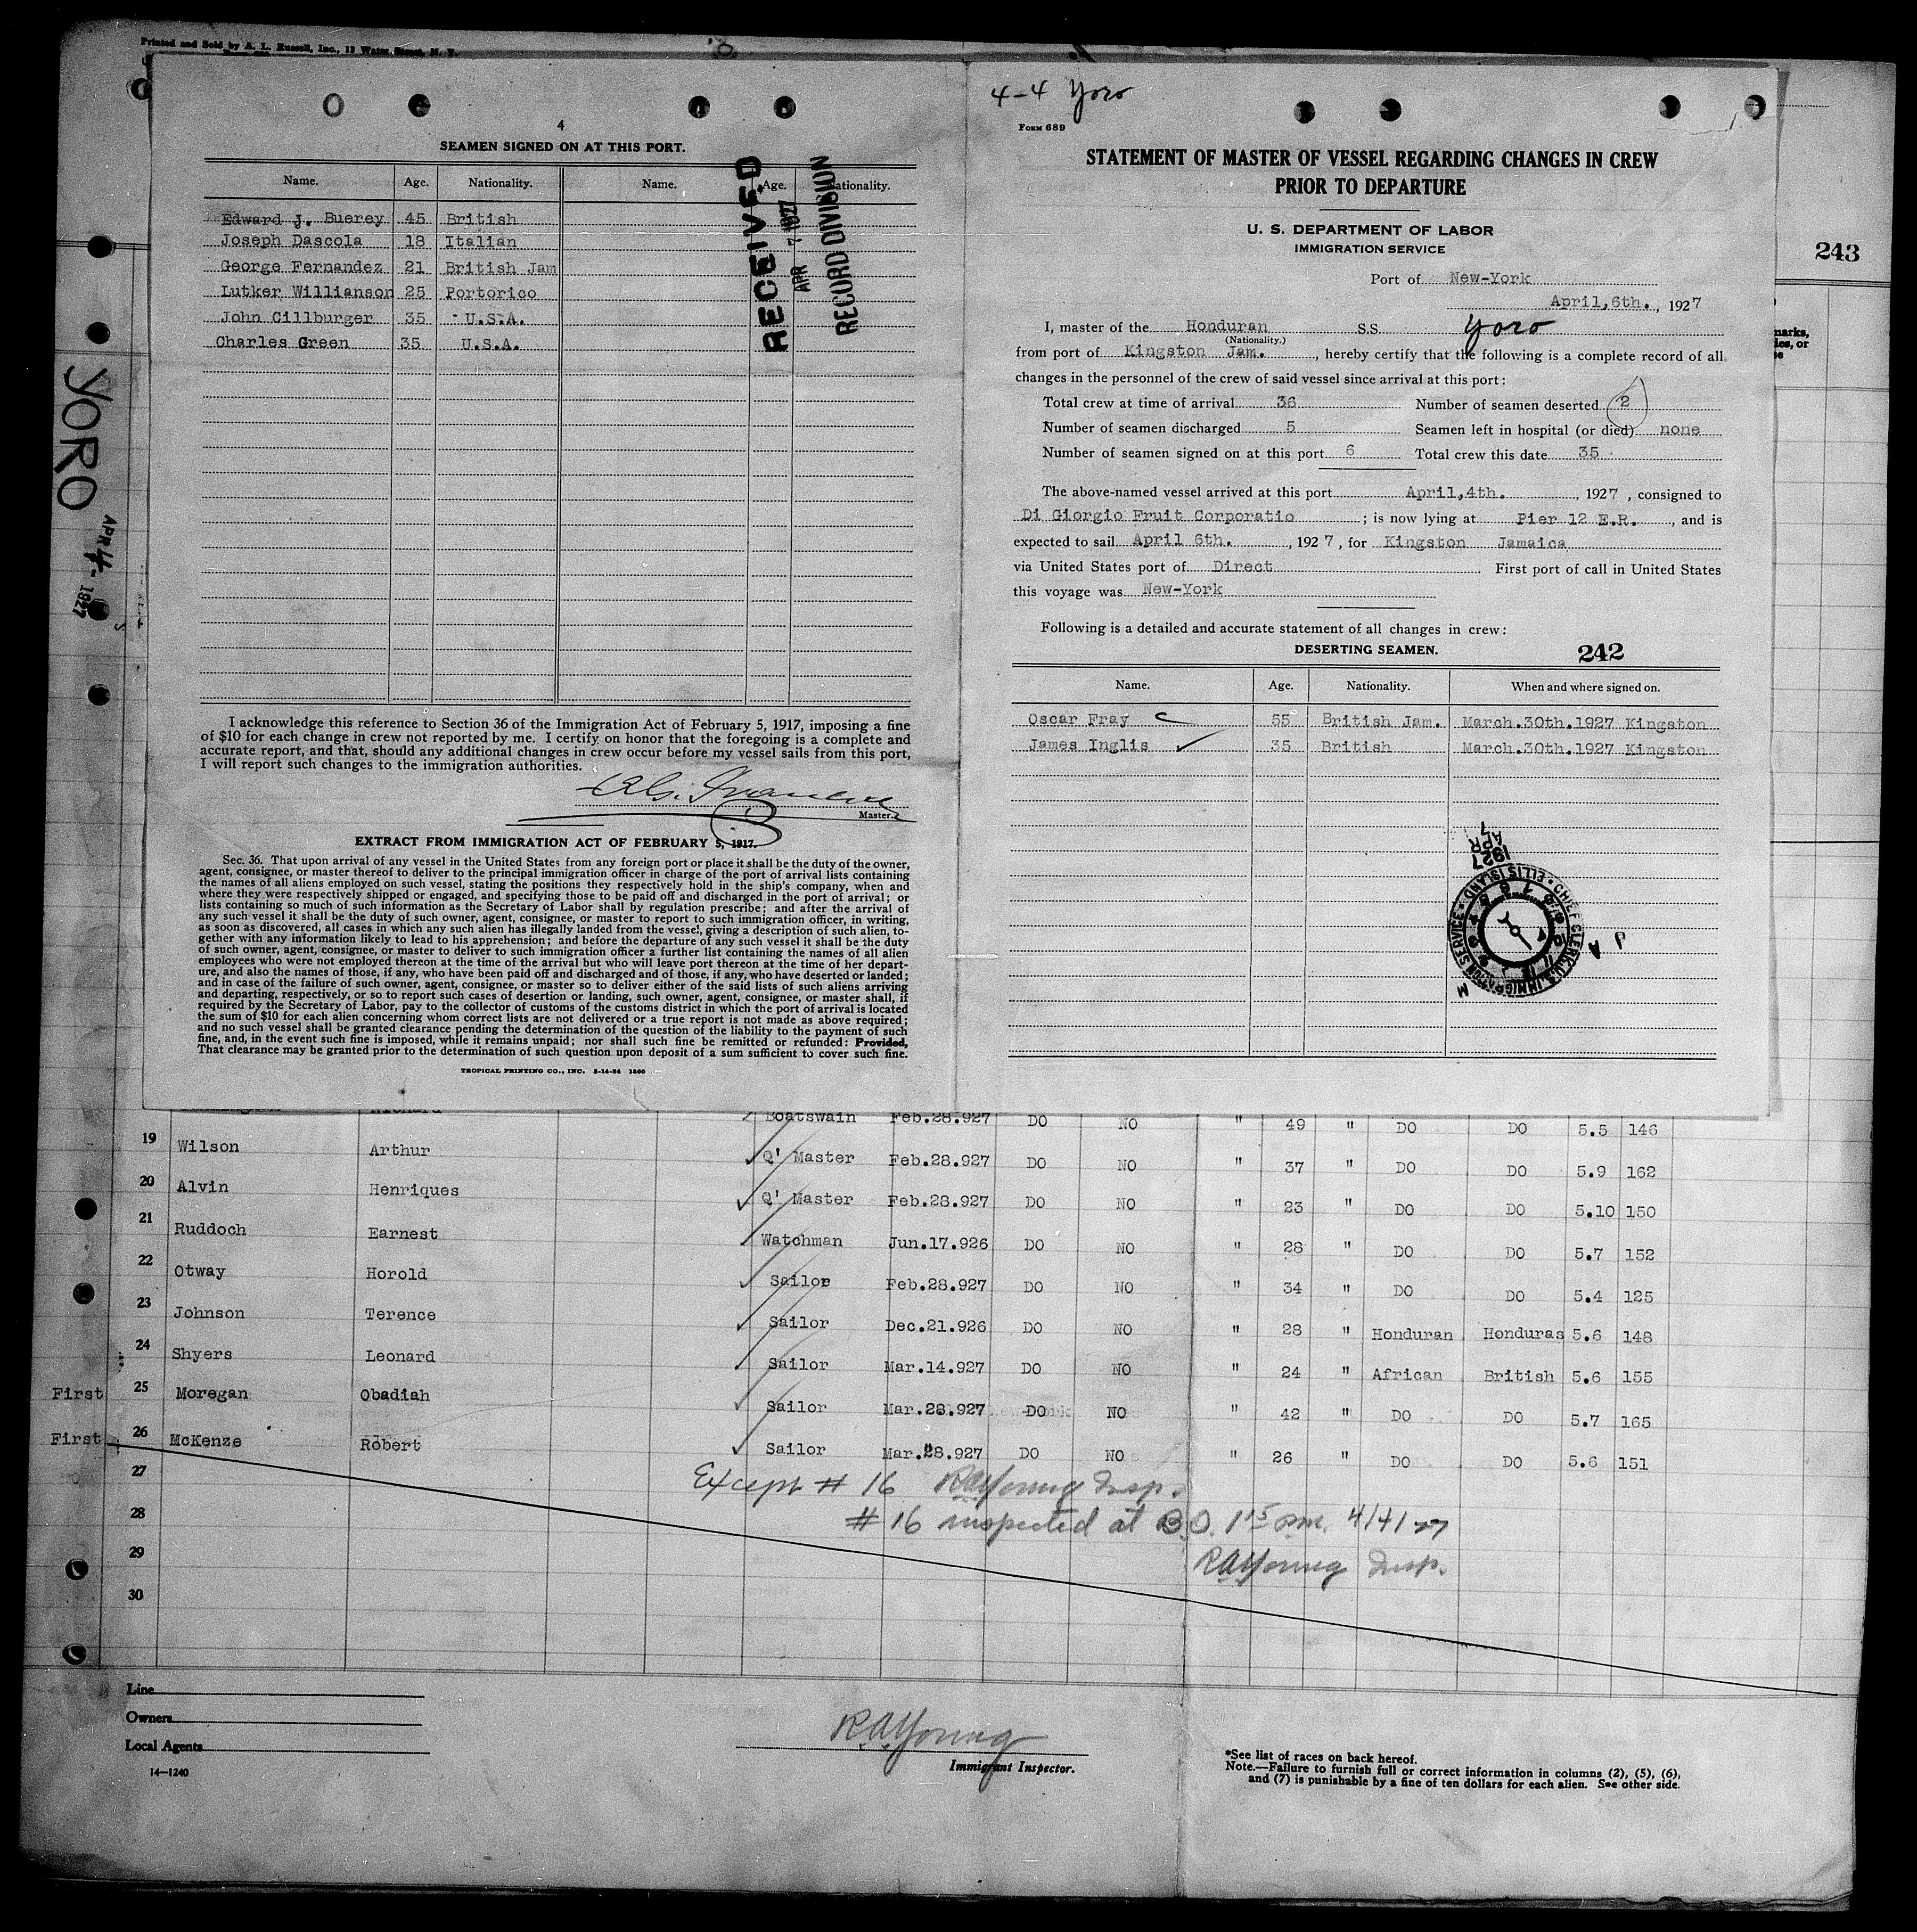 Printed and Sold by A. L. Russell, Inc., 12 Water Street, N. Y.
4
SEAMEN SIGNED ON AT THIS PORT.
Name. Age. Nationality. Name. Age. Nationality.
Edward J. Buerey 45 British
Joseph Dascola 18 Italian
George Fernandez 21 British Jam
Lutker Willianson 25 Portorico
John Cillburger 35 U.S.A.
Charles Green 35 U.S.A.
RECEIVED
APR 7 1927
RECORD DIVISION
I acknowledge this reference to Section 36 of the Immigration Act of February 5, 1917, imposing a fine
of $10 for each change in crew not reported by me. I certify on honor that the foregoing is a complete and
accurate report, and that, should any additional changes in crew occur before my vessel sails from this port,
I will report such changes to the immigration authorities.
Master.
EXTRACT FROM IMMIGRATION ACT OF FEBRUARY 5, 1917.
Sec. 36. That upon arrival of any vessel in the United States from any foreign port or place it shall be the duty of the owner,
agent, consignee, or master thereof to deliver to the principal immigration officer in charge of the port of arrival lists containing
the names of all aliens employed on such vessel, stating the positions they respectively hold in the ship's company, when and
where they were respectively shipped or engaged, and specifying those to be paid off and discharged in the port of arrival; or
lists containing so much of such information as the Secretary of Labor shall by regulation prescribe; and after the arrival of
any such vessel it shall be the duty of such owner, agent, consignee, or master to report to such immigration officer, in writing,
as soon as discovered, all cases in which any such alien has illegally landed from the vessel, giving a description of such alien, to-
gether with any information likely to lead to his apprehension; and before the departure of any such vessel it shall be the duty
of such owner, agent, consignee, or master to deliver to such immigration officer a further list containing the names of all alien
employees who were not employed thereon at the time of the arrival but who will leave port thereon at the time of her depart-
ure, and also the names of those, if any, who have been paid off and discharged and of those, if any, who have deserted or landed;
and in case of the failure of such owner, agent, consignee, or master so to deliver either of the said lists of such aliens arriving
and departing, respectively, or so to report such cases of desertion or landing, such owner, agent, consignee, or master shall, if
required by the Secretary of Labor, pay to the collector of customs of the customs district in which the port of arrival is located
the sum of $10 for each alien concerning whom correct lists are not delivered or a true report is not made as above required;
and no such vessel shall be granted clearance pending the determination of the question of the liability to the payment of such
fine, and, in the event such fine is imposed, while it remains unpaid; nor shall such fine be remitted or refunded: Provided,
That clearance may be granted prior to the determination of such question upon deposit of a sum sufficient to cover such fine.
TROPICAL PRINTING CO., INC. 5-14-24 1500
4-4 Yoro
Form 689
STATEMENT OF MASTER OF VESSEL REGARDING CHANGES IN CREW
PRIOR TO DEPARTURE
U. S. DEPARTMENT OF LABOR
IMMIGRATION SERVICE
Port of New-York
April,6th., 1927
I, master of the Honduran S.S. Yoro
(Nationality.)
from port of Kingston Jam., hereby certify that the following is a complete record of all
changes in the personnel of the crew of said vessel since arrival at this port:
Total crew at time of arrival 36 Number of seamen deserted 2
Number of seamen discharged 5 Seamen left in hospital (or died) none
Number of seamen signed on at this port 6 Total crew this date 35
The above-named vessel arrived at this port April,4th., 1927, consigned to
Di Giorgio Fruit Corporatio; is now lying at Pier 12 E.R., and is
expected to sail April 6th., 1927, for Kingston Jamaica
via United States port of Direct First port of call in United States
this voyage was New-York
Following is a detailed and accurate statement of all changes in crew:
DESERTING SEAMEN. 242
Name. Age. Nationality. When and where signed on.
Oscar Fray 55 British Jam. March.30th.1927 Kingston
James Inglis 35 British March.30th.1927 Kingston
1927 APR 7
CHIEF CLERK, U.S. IMMIGRATION SERVICE ELLIS ISLAND
243
YORO
APR 4 - 1927
Boatswain Feb.28.927 DO NO " 49 " DO DO 5.5 146
19 Wilson Arthur Q' Master Feb.28.927 DO NO " 37 " DO DO 5.9 162
20 Alvin Henriques Q' Master Feb.28.927 DO NO " 23 " DO DO 5.10 150
21 Ruddoch Earnest Watchman Jun.17.926 DO NO " 28 " DO DO 5.7 152
22 Otway Horold Sailor Feb.28.927 DO NO " 34 " DO DO 5.4 125
23 Johnson Terence Sailor Dec.21.926 DO NO " 28 " Honduran Honduras 5.6 148
24 Shyers Leonard Sailor Mar.14.927 DO NO " 24 " African British 5.6 155
First 25 Moregan Obadiah Sailor Mar.28.927 DO NO " 42 " DO DO 5.7 165
First 26 McKenze Robert Sailor Mar.28.927 DO NO " 26 " DO DO 5.6 151
27
Except # 16 RAYoung Insp.
28
# 16 inspected at B.O. 1 15 pm. 4/4/27
29
RAYoung Insp.
30
Line
Owners
Local Agents
14—1240
RAYoung
Immigrant Inspector.
*See list of races on back hereof.
Note.—Failure to furnish full or correct information in columns (2), (5), (6),
and (7) is punishable by a fine of ten dollars for each alien. See other side.